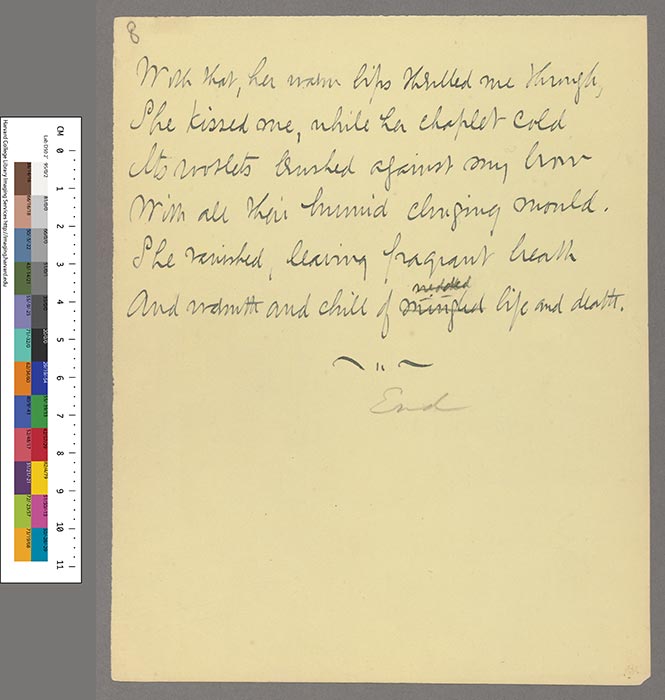 8
With that, her warm lips thrilled me through,
She kissed me, while her chaplet cold
Its rootlets brushed against my brow
With all their humid clinging mould.
She vanished, leaving fragrant breath
And warmth and chill of wedded mingled life and death.
End
CM 0 1 2 3 4 5 6 7 8 9 10 11
Harvard College Library Imaging Services http://imaging.harvard.edu